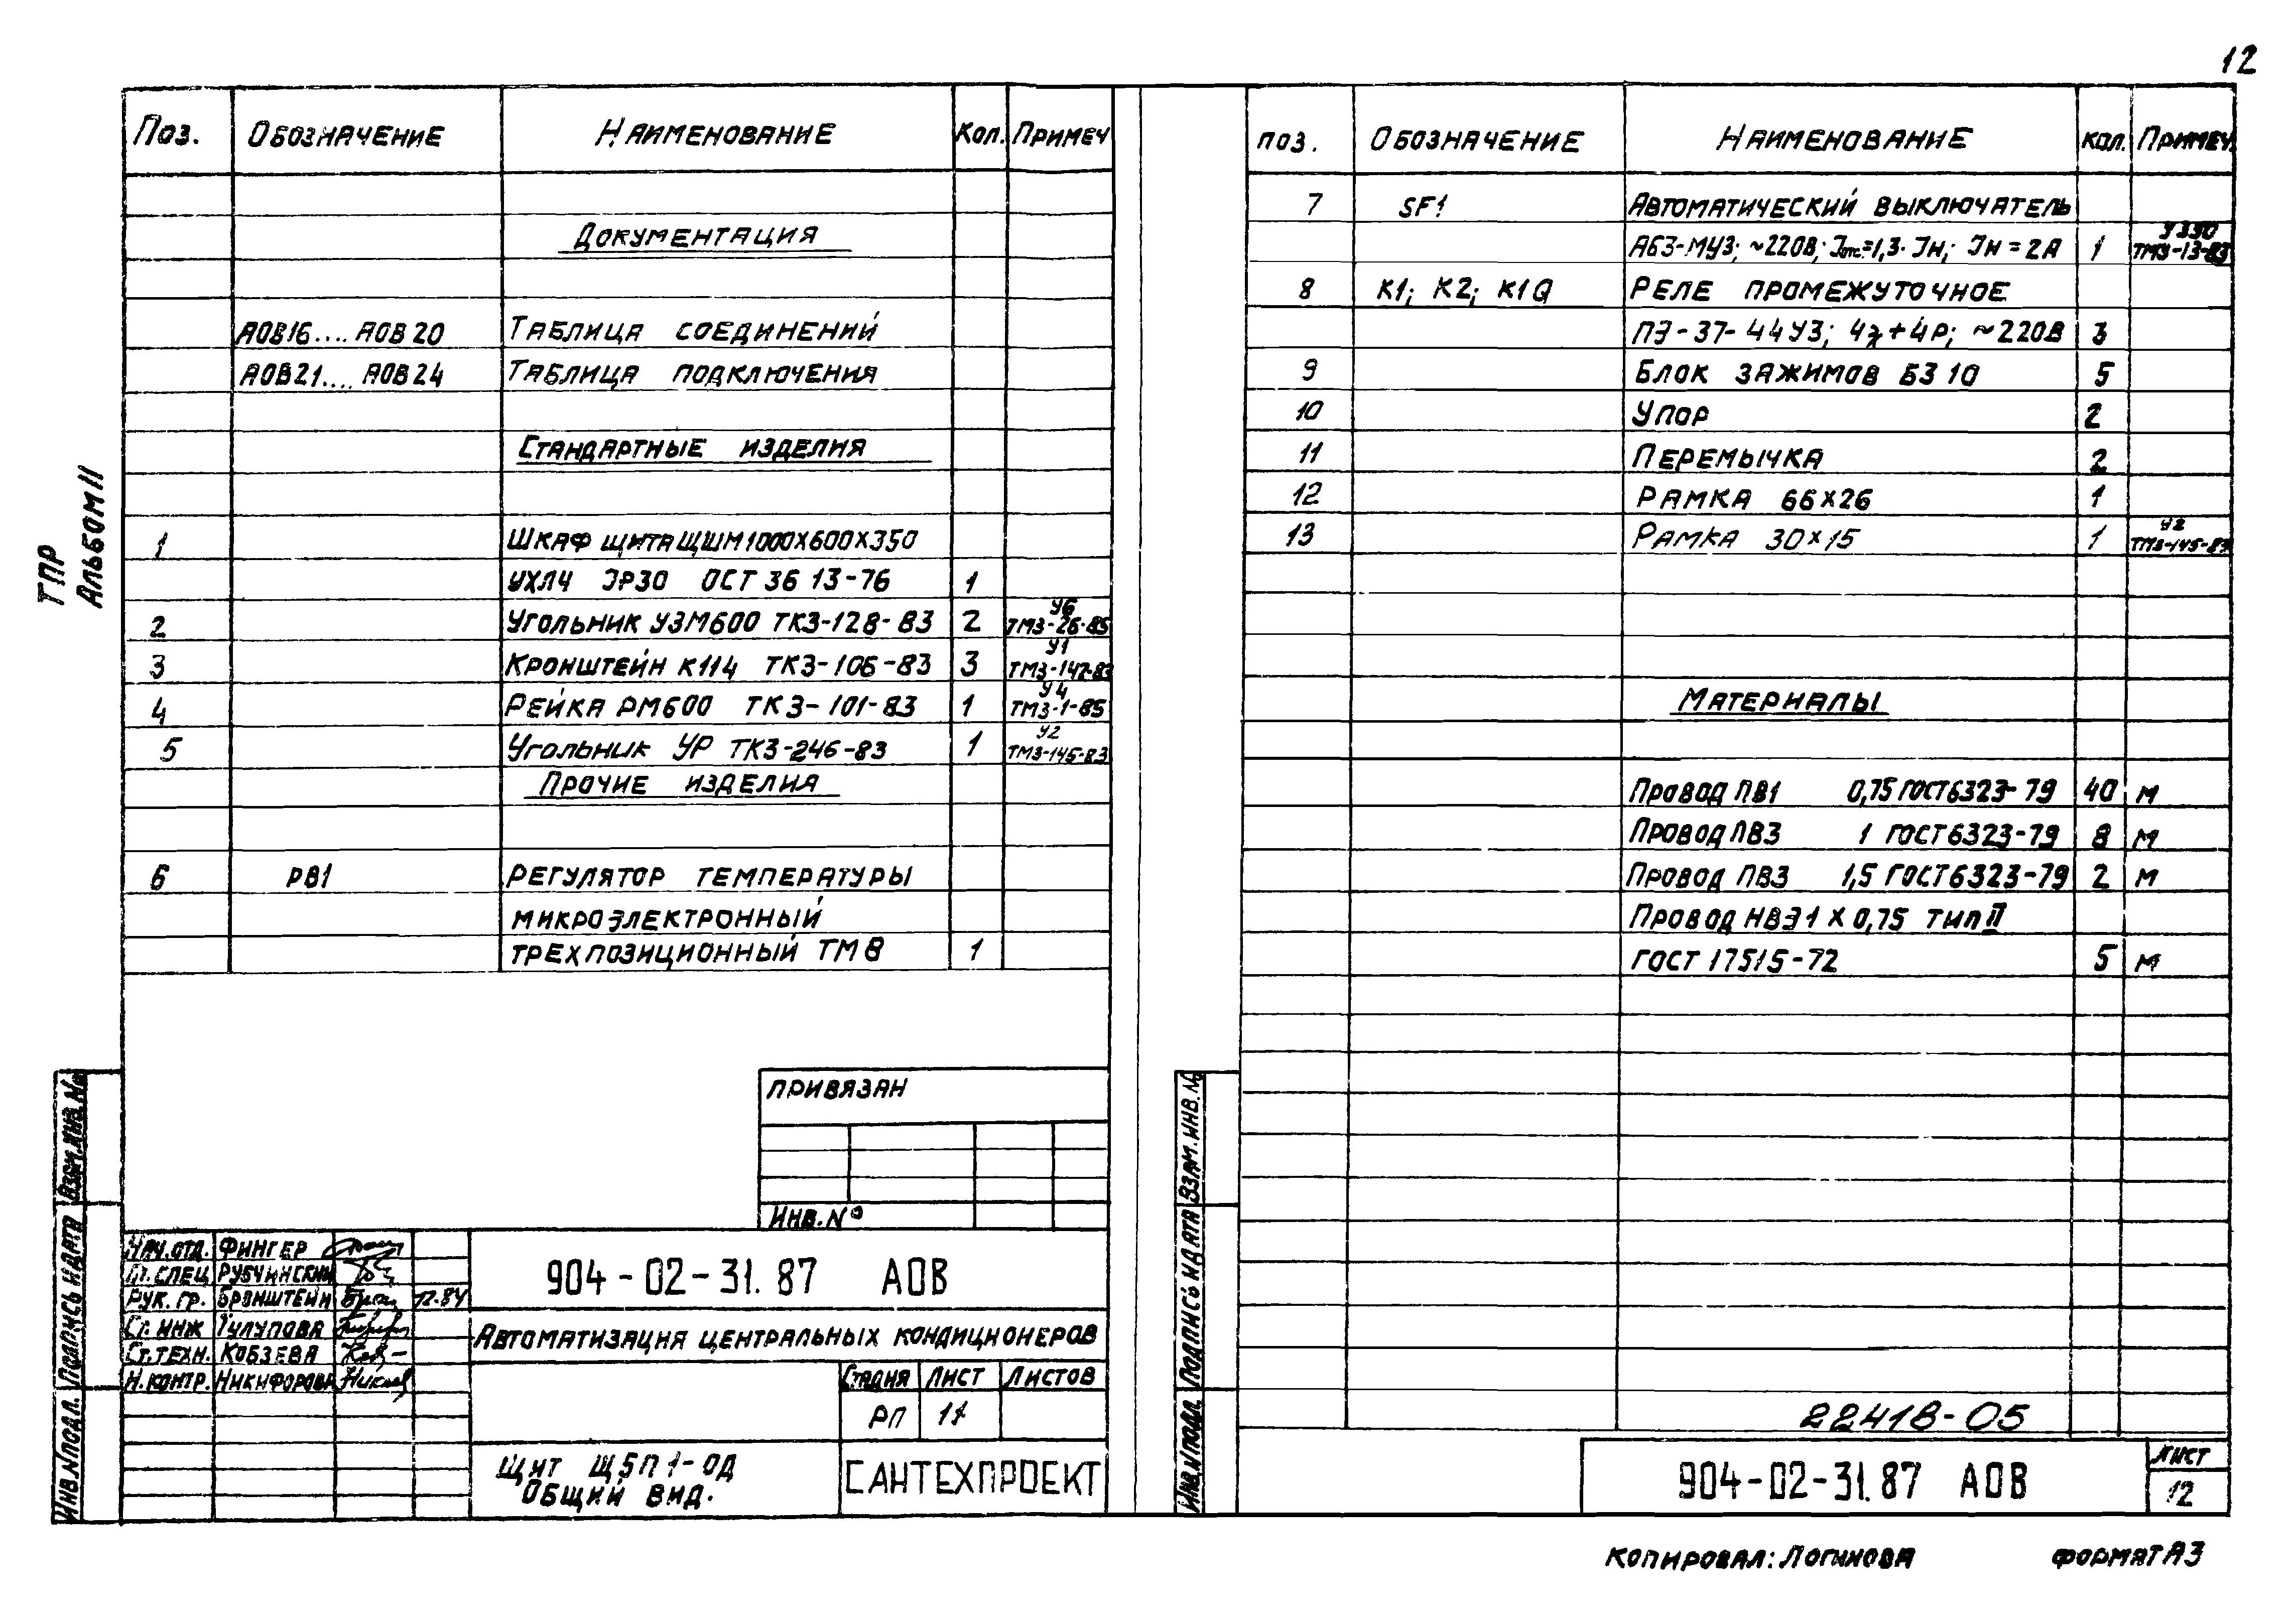 12
ТПР
Альбом II
Поз. Обозначение Наименование Кол. Примеч
Документация
АОВ16.... АОВ20 Таблица соединений
АОВ21.... АОВ24 Таблица подключения
Стандартные изделия
1 Шкаф щита ЩШМ1000х600х350
УХЛ4 IP30 ОСТ 36 13-76 1
2 Угольник УЗМ600 ТКЗ-128-83 2 У6 ТМЗ-26-85
3 Кронштейн К114 ТКЗ-106-83 3 У1 ТМЗ-147-83
4 Рейка РМ600 ТКЗ-101-83 1 У4 ТМЗ-1-85
5 Угольник УР ТКЗ-246-83 1 У2 ТМЗ-145-83
Прочие изделия
6 РВ1 Регулятор температуры
микроэлектронный
трехпозиционный ТМ8 1
Привязан
Инв. №
Нач.отд. Фингер
Гл.спец Рубчинский
Рук. гр. Бронштейн 12.84
Ст. инж Тулупова
Ст.техн. Кобзева
Н.контр. Никифорова
904-02-31.87 АОВ
Автоматизация центральных кондиционеров
Стадия Лист Листов
РП 11
Щит Щ5П1-ОД
Общий вид.
САНТЕХПРОЕКТ
Инв.№подл. Подпись и дата Взам.инв.№
поз. Обозначение Наименование кол. Примеч.
7 SF1 Автоматический выключатель
А63-МУ3; ~220В; Iотс=1,3·Iн; Iн=2А 1 У330 ТМ4-13-83
8 К1; К2; К1Q Реле промежуточное
ПЭ-37-44У3; 4з+4р; ~220В 3
9 Блок зажимов БЗ 10 5
10 Упор 2
11 Перемычка 2
12 Рамка 66х26 1
13 Рамка 30х15 1 У2 ТМ3-145-83
Материалы
Провод ПВ1 0,75 ГОСТ6323-79 40 м
Провод ПВ3 1 ГОСТ6323-79 8 м
Провод ПВ3 1,5 ГОСТ6323-79 2 м
Провод НВЭ 1 х 0,75 тип II
ГОСТ 17515-72 5 м
22418-05
Инв.№подл. Подпись и дата Взам.инв.№
904-02-31.87 АОВ
Лист
12
Копировал: Логинова Формат А3